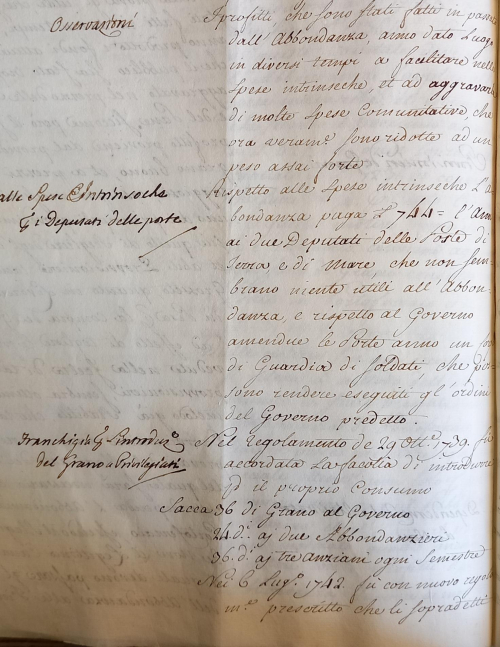 Osservazioni
I profitti, che sono stati fatti in passato
dall' Abbondanza, anno dato luogo
in diversi tempi a facilitare nelle
spese intrinseche, et ad aggravarla
di molte spese Comunitative, che
ora veram.e sono ridotte ad un
peso assai forte
alle Spese Intrinseche
p i Deputati delle porte
Rispetto alle spese intrinseche l'Ab
bondanza paga 744 = l'Anno
ai due Deputati delle Porte di
Terra e di Mare, che non sem
brano niente utili all' Abbon
danza, e rispetto al Governo
amendue le Porte anno un
di Guardia di Soldati, che pos
sono rendere eseguiti gl' ordini
del Governo predetto.
Franchigie p l'introduz.e
del Grano a Privilegiati
Nel regolamento de 29 Ott.e 1739. fu
accordata la facoltà di introdurre
p il proprio Consumo
Sacca 36 di Grano al Governo
24 d.i aj due Abbondanzieri
36. d.i aj tre Anziani ogni Semestre
Nei 6 Lug.o 1742 fu con nuovo regola
m.o prescritto che li sopradetti